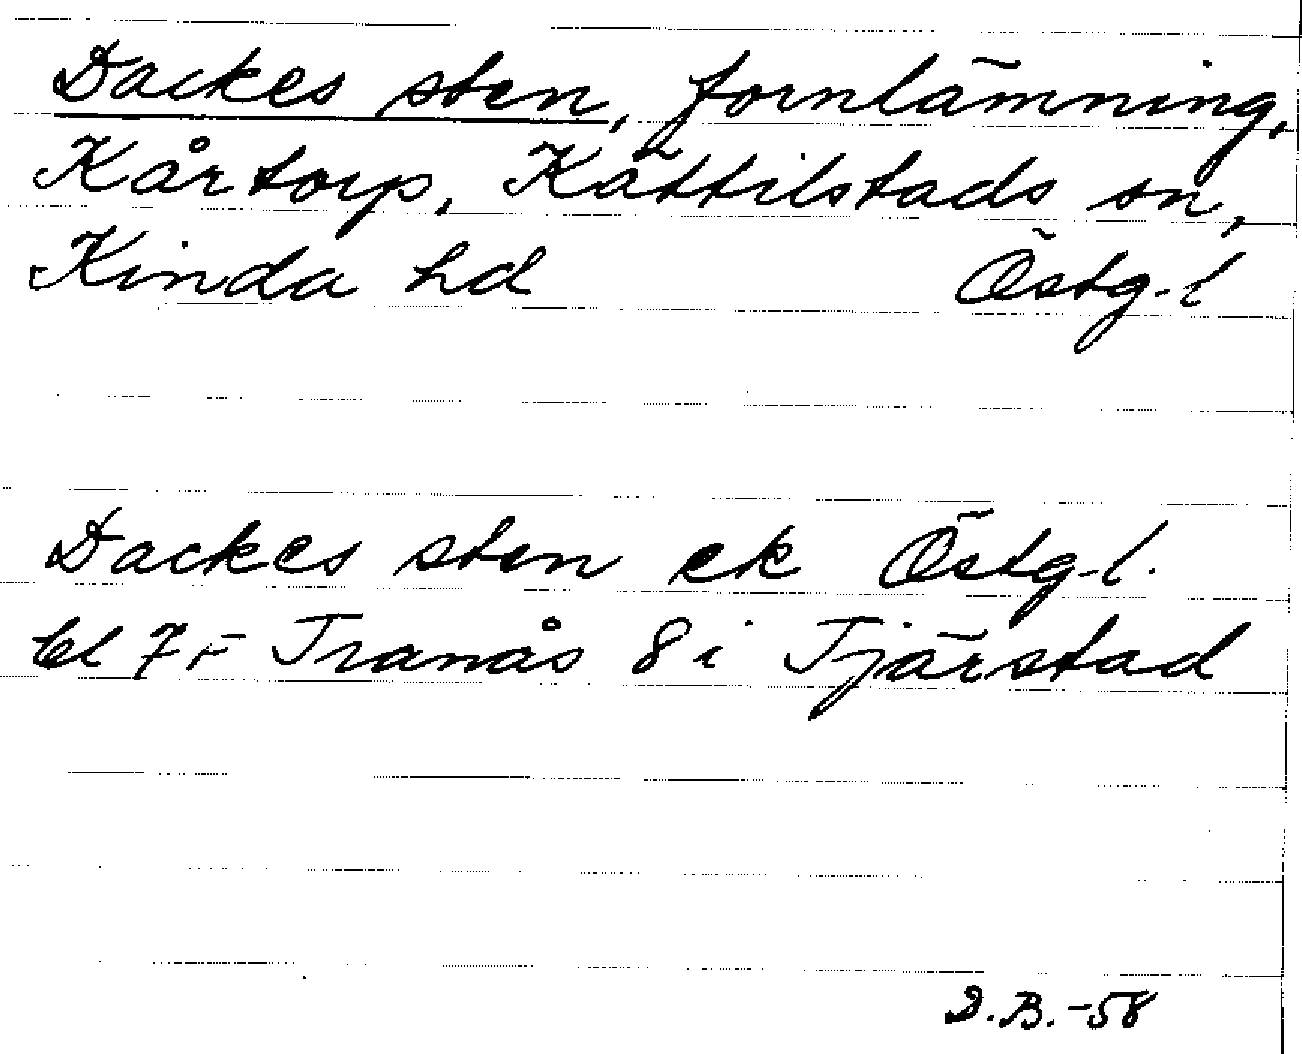 Dackes sten, fornlämning,
Kårtorp, Kättilstads sn,
Kinda hd Östg-l
Dackes sten ek Östg-l.
bl 7F Tranås 8 i Tjärstad
D.B.-58